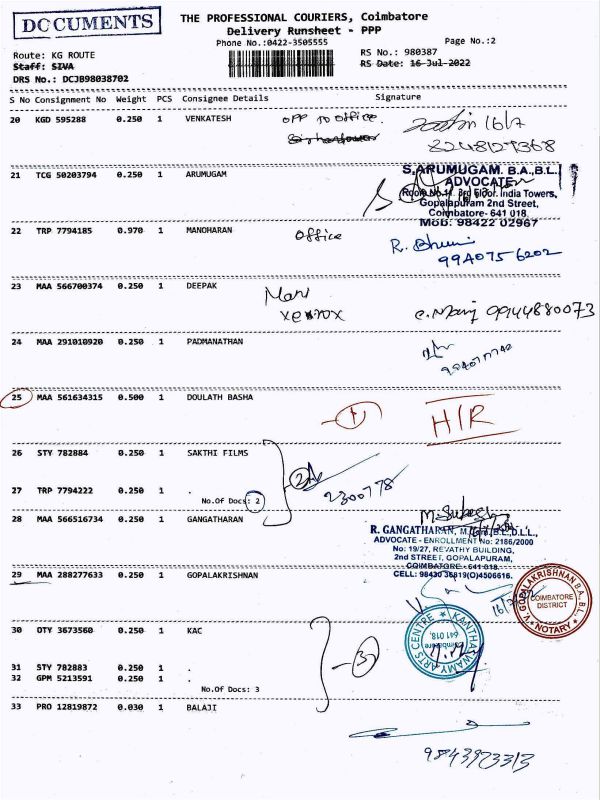 DOCUMENTS
THE PROFESSIONAL COURIERS, Coimbatore
Delivery Runsheet - PPP
Phone No.:0422-3505555
Page No.:2
Route: KG ROUTE
RS No.: 980387
Staff: SIVA
RS Date: 16-Jul-2022
DRS No.: DCJB98038702
S No Consignment No Weight PCS Consignee Details Signature
20 KGD 595288 0.250 1 VENKATESH OPP TO Office. 16/7
8248127368
21 TCG 50203794 0.250 1 ARUMUGAM
S.ARUMUGAM. B.A.,B.L.
ADVOCATE
Room No.11, 3rd Floor, India Towers,
Gopalapuram 2nd Street,
Coimbatore- 641 018.
Mob: 98422 02967
22 TRP 7794185 0.970 1 MANOHARAN office R. Bhuvi
9940756202
23 MAA 566700374 0.250 1 DEEPAK Mani
xerox c. Mani 9944880073
24 MAA 291010920 0.250 1 PADMANATHAN
25 MAA 561634315 0.500 1 DOULATH BASHA 1 H/R
26 STY 782884 0.250 1 SAKTHI FILMS 2
27 TRP 7794222 0.250 1 . 2300778
No.Of Docs: 2
28 MAA 566516734 0.250 1 GANGATHARAN
R. GANGATHARAN, M.Com.,B.L.,D.L.L.,
ADVOCATE - ENROLLMENT No: 2186/2000
No: 19/27, REVATHY BUILDING,
2nd STREET, GOPALAPURAM,
COIMBATORE - 641 018.
CELL: 98430 36819(O)4506616.
29 MAA 288277633 0.250 1 GOPALAKRISHNAN
V. GOPALAKRISHNAN B.A., B.L.
COIMBATORE
DISTRICT
NOTARY
30 OTY 3673560 0.250 1 KAC 3
KANTHASWAMY ARTS CENTRE
Coimbatore
641 018.
31 STY 782883 0.250 1 .
32 GPM 5213591 0.250 1 .
No.Of Docs: 3
33 PRO 12819872 0.030 1 BALAJI
9843923313